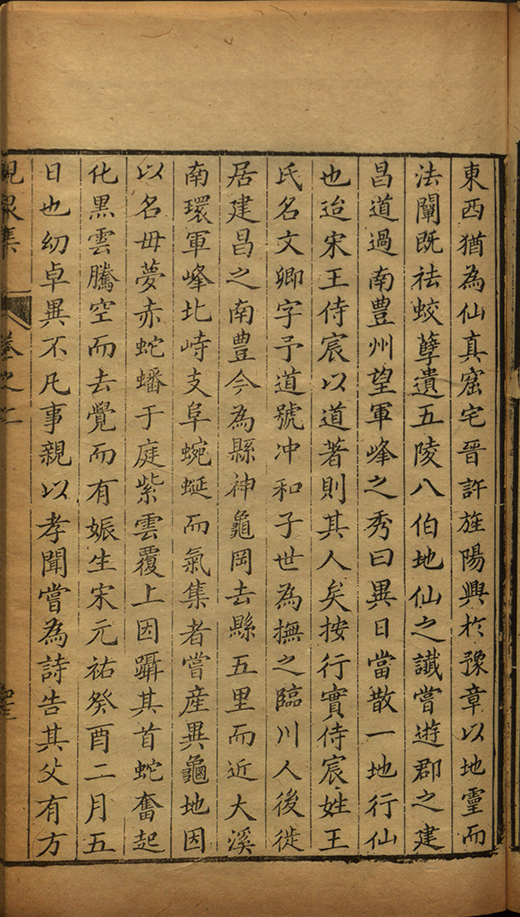 東西猶為仙真窟宅晉許旌陽興於豫章以地靈而
法闡既祛蛟孽遺五陵八伯地仙之讖嘗遊郡之建
昌道過南豊州望軍峰之秀曰異日當散一地行仙
也迨宋王侍宸以道著則其人矣按行實侍宸姓王
氏名文卿字予道號冲和子世為撫之臨川人後徙
居建昌之南豊今為縣神龜岡去縣五里而近大溪
南環軍峰北峙支阜蜿蜒而氣集者嘗産異龜地因
以名毋夢赤蛇蟠于庭紫雲覆上因躡其首蛇奮起
化黒雲騰空而去覺而有娠生宋元祐癸酉二月五
日也幼卓異不凡事親以孝聞嘗為詩告其父有方
峴泉集 卷之二